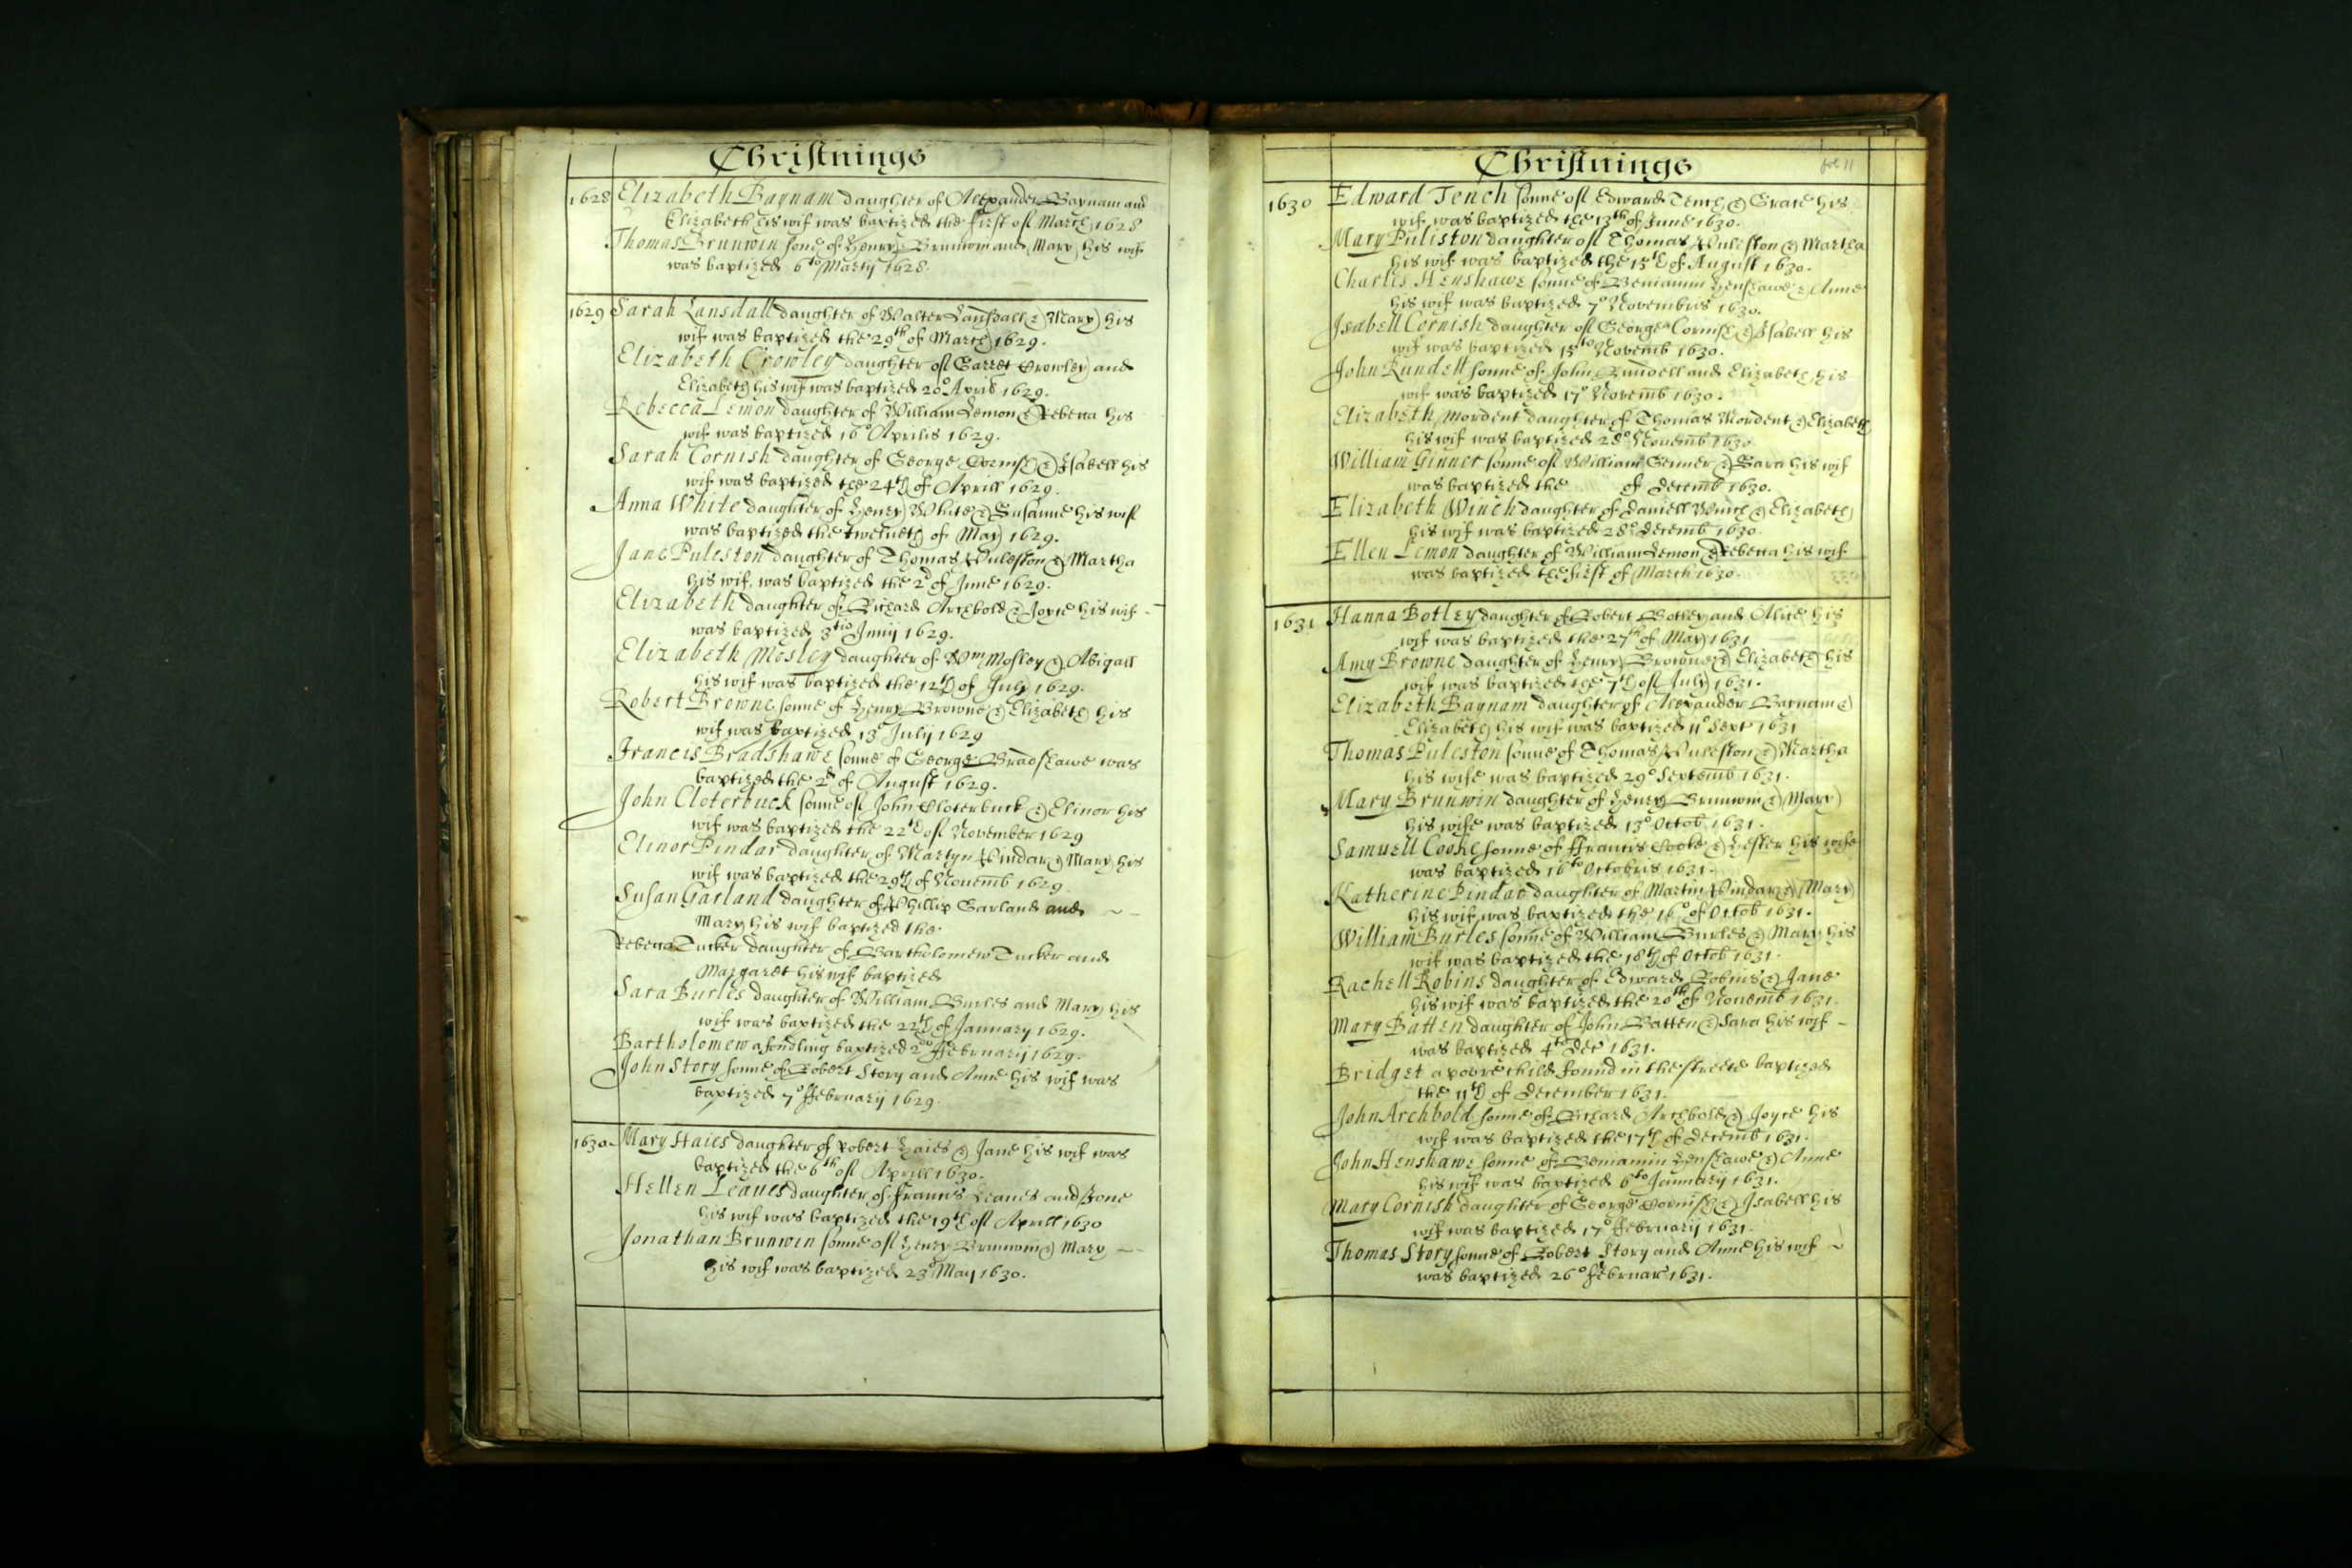 Christnings
1628 Elizabeth Baynam daughter of Alexander Baynam and
Elizabeth his wif was baptized the first of March 1628
Thomas Brunwin sone of Henry Brunwin and Mary his wif
was baptized 6to Martij 1628.
1629 Sarah Lansdall daughter of Walter Lansdall & Mary his
wif was baptized the 29th of March 1629.
Elizabeth Crowley daughter of Garret Crowley and
Elizabeth his wif was baptized 20o April 1629.
Rebecca Lemon daughter of William Lemon & Rebecca his
wif was baptized 16o Aprilis 1629.
Sarah Cornish daughter of George Cornish & Isabell his
wif was baptized the 24th of Aprill 1629.
Anna White daughter of Henry White & Susanne his wif
was baptized the twelueth of May 1629.
Jane Puleston daughter of Thomas Puleston & Martha
his wif was baptized the 2d of June 1629.
Elizabeth daughter of Richard Archbold & Joyce his wif -
was baptized 3tio Junij 1629.
Elizabeth Mosley daughter of Wm Mosley & Abigall
his wif was baptized the 12th of July 1629.
Robert Browne sonne of Henry Browne & Elizabeth his
wif was baptized 13o July 1629
Francis Bradshawe sonne of George Bradshawe was
baptized the 2d of August 1629.
John Cloterbuck sonne of John Cloterbuck & Elinor his
wif was baptized the 22th of November 1629
Elinor Pindar daughter of Martyn Pindar & Mary his
wif was baptized the 29th of Nouemb 1629
Susan Garland daughter of Phillip Garland and ~ -
Mary his wif baptized the
Rebecca Tucker daughter of Bartholomew Tucker and
Margaret his wif baptized
Sara Burles daughter of William Burles and Mary his
wif was baptized the 22th of January 1629.
Bartholomew a fondling baptized 2do ffebruary 1629.
John Story sonne of Robert Story and Anne his wif was
baptized 7o ffebruary 1629.
1630 Mary Haies daughter of Robert Haies & Jane his wif was
baptized the 6th of Aprill 1630.
Hellen Leaues daughter of Francis Leaues and Jone
his wif was baptized the 19th of Aprill 1630
Jonathan Brunwin sonne of Henry Brunwin & Mary - -
his wif was baptized 23o May 1630.
Christnings fol 11
1630 Edward Tench sonne of Edward Tench & Grace his
wif was baptized the 13th of June 1630.
Mary Puliston daughter of Thomas Puleston & Martha
his wif was baptized the 15th of August 1630.
Charles Henshawe sonne of Beniamin Henshawe & Anne
his wif was baptized 7o Novembris 1630.
Isabell Cornish daughter of George Cornish & Isabell his
wif was baptized 15to Novemb 1630.
John Rundell sonne of John Rundell and Elizabeth his
wif was baptized 17o Novemb 1630.
Elizabeth Mordent daughter of Thomas Mordent & Elizabeth
his wif was baptized 28o Nouemb 1630
William Ginner sonne of William Genner & Sara his wif
was baptized the of Decemb 1630.
Elizabeth Winch daughter of Daniell Winch & Elizabeth
his wif was baptized 28o Decemb 1630
Ellen Lemon daughter of William Lemon & Rebecca his wif
was baptized the first of March 1630.
1631 Hanna Botley daughter of Robert Botley and Alice his
wif was baptized the 27th of May 1631
Amy Browne daughter of Henry Browne & Elizabeth his
wif was baptized the 7th of July 1631.
Elizabeth Baynam daughter of Alexander Baynam &
Elizabeth his wif was baptized 11o Sept 1631
Thomas Puleston sonne of Thomas Puleston & Martha
his wife was baptized 29o Septemb 1631.
Mary Brunwin daughter of Henry Brunwin & Mary
his wife was baptized 13o Octob 1631.
Samuell Cooke sonne of ffrancis Cooke & Hester his wife
was baptized 16to Octobris 1631.
Katherine Pindar daughter of Martin Pindar & Mary
his wif was baptized the 16o of Octob 1631.
William Burles sonne of William Burles & Mary his
wif was baptized the 18th of Octob 1631.
Rachell Robins daughter of Edward Robins & Jane
his wif was baptized the 20th of Nouemb 1631.
Mary Batten daughter of John Batten & Sara his wif -
was baptized 4to Dec 1631.
Bridget a poore child found in the streete baptized
the 11th of December 1631.
John Archbold sonne of Richard Archbold & Joyce his
wif was baptized the 17th of Decemb 1631.
John Henshawe sonne of Beniamin Henshawe & Anne
his wif was baptized 6to January 1631.
Mary Cornish daughter of George Cornish & Isabell his
wif was baptized 17o ffebruary 1631.
Thomas Story sonne of Robert Story and Anne his wif ~
was baptized 26o ffebruar 1631.